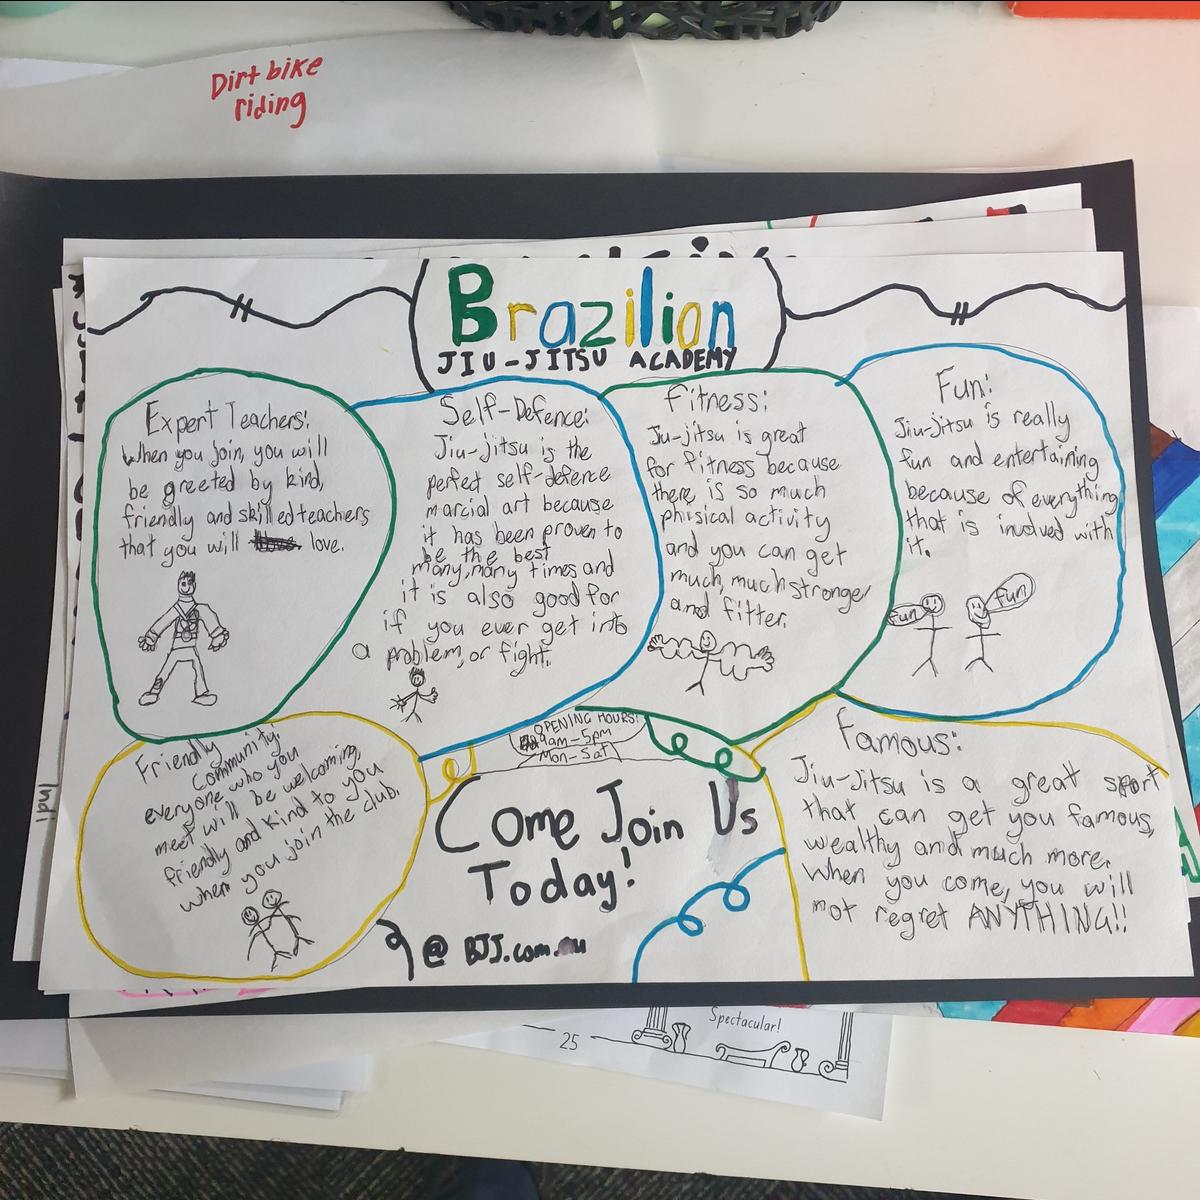 Dirt bike
riding
Brazilian
JIU-JITSU ACADEMY
Expert Teachers:
When you join, you will
be greeted by kind,
friendly and skilled teachers
that you will love.
Self-Defence:
Jiu-jitsu is the
perfect self-defence
marcial art because
it has been proven to
be the best
many, many times and
it is also good for
if you ever get into
a problem, or fight.
fitness:
Ju-jitsu is great
for fitness because
there is so much
phisical activity
and you can get
much, much stronger
and fitter.
Fun:
Jiu-Jitsu is really
fun and entertaining
because of everything
that is involved with
it.
Fun
fun
Friendly
community:
everyone who you
meet will be welcoming,
friendly and kind to you
when you join the club.
OPENING HOURS:
9am-5pm
Mon-Sat
Come Join Us
Today!
@ BJJ.com.au
Famous:
Jiu-Jitsu is a great sport
that can get you famous,
wealthy and much more.
When you come, you will
not regret ANYTHING!!
Spectacular!
25